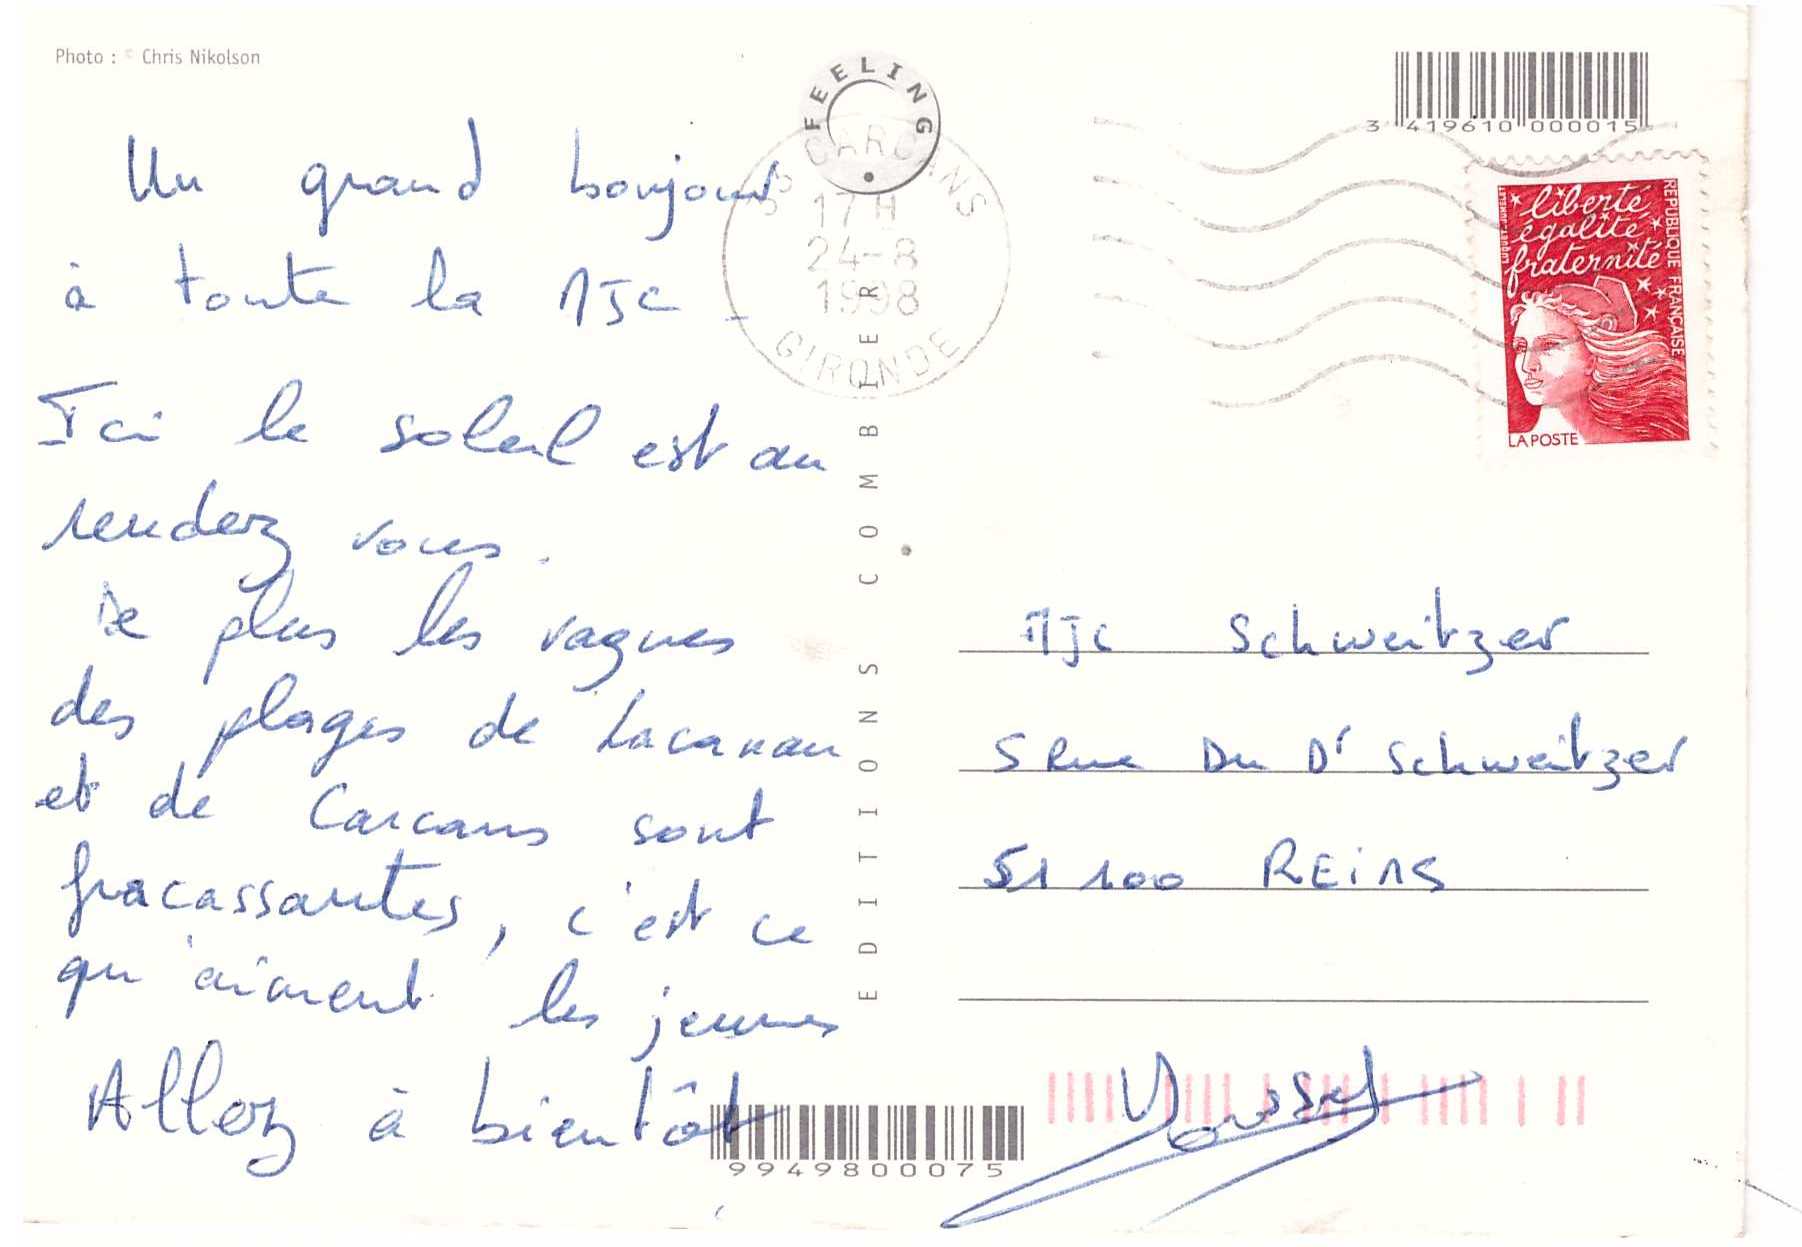 Photo : © Chris Nikolson
FEELING
33 CARCANS
17 H
24-8
1998
GIRONDE
3 419610 000015
liberté
égalité
fraternité
RÉPUBLIQUE FRANÇAISE
LA POSTE
Un grand bonjour
à toute la MJC
Ici le soleil est au
rendez vous.
De plus les vagues
des plages de Lacanau
et de Carcans sont
fracassantes, c'est ce
qu'aiment les jeunes
Allez à bientôt
EDITIONS COMBIER
MJC Schweitzer
5 Rue Du Dr Schweitzer
51100 REiMS
Youssef
9949800075